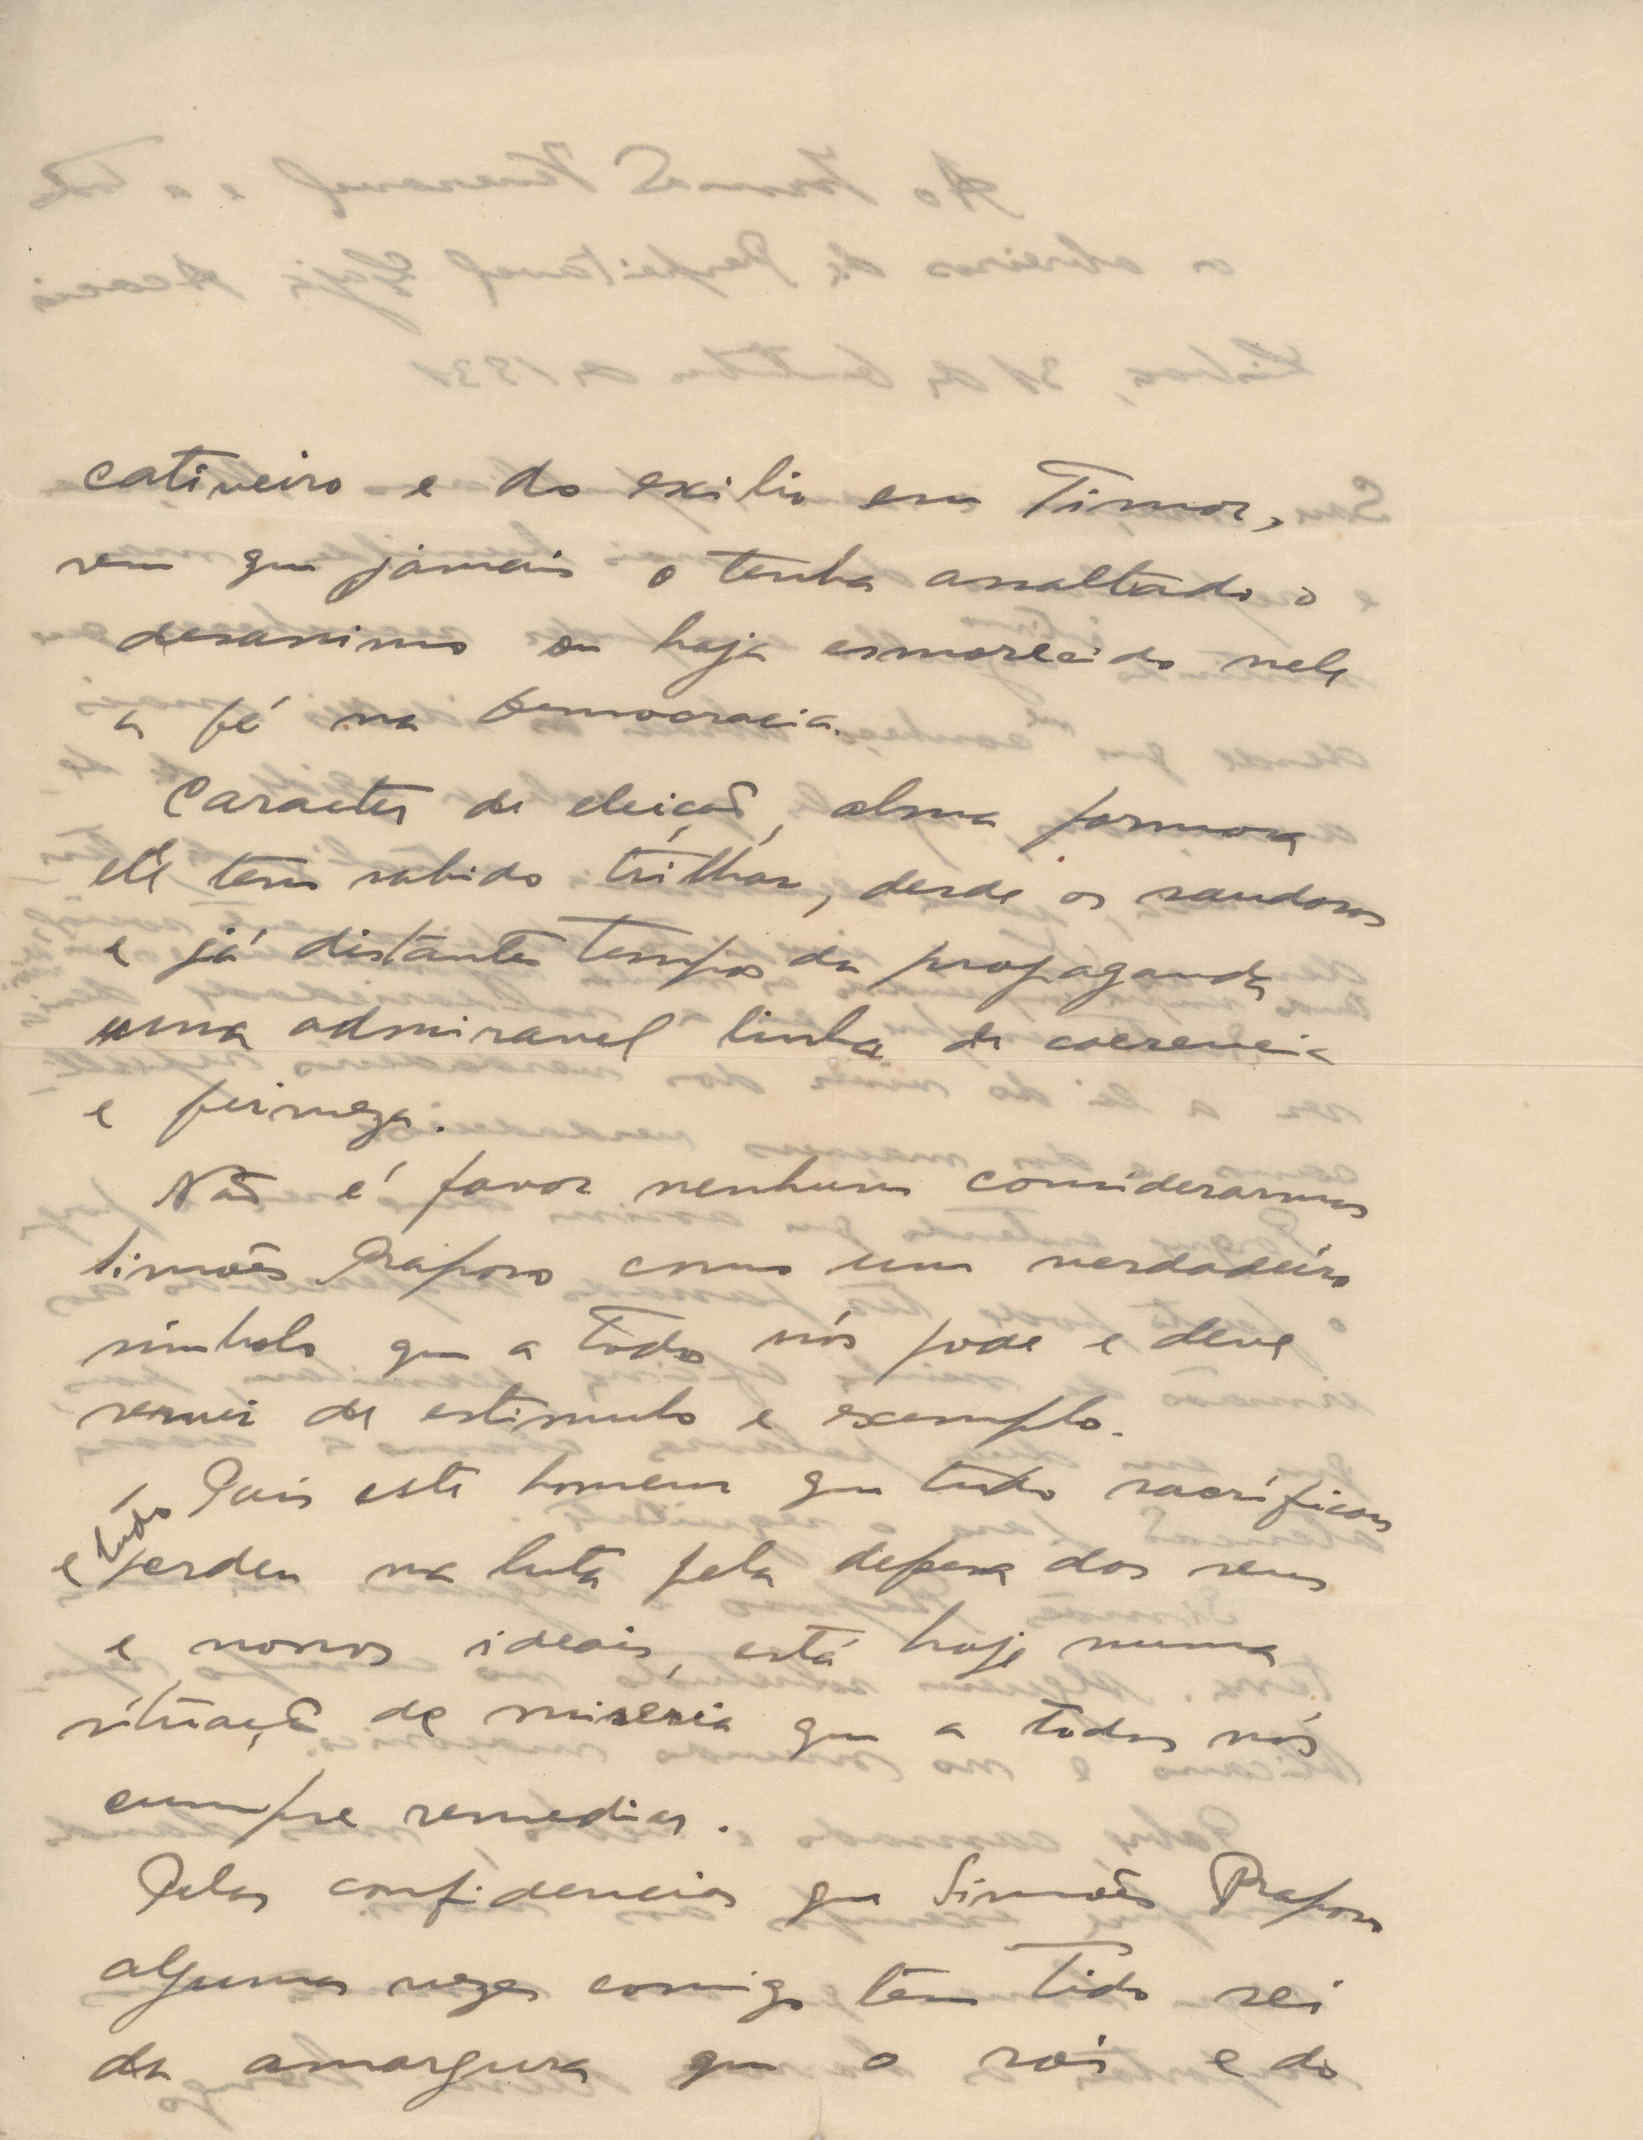 cativeiro e do exilio em Timor,
sem que jamais o tenha assaltado o
desanimo ou haja esmorecido nele
a fé na Democracia.
Caracter de eleição, alma formosa
ele tem sabido trilhar, desde os saudosos
e já distantes tempos da propaganda
uma admiravel linha de coerencia
e firmeza.
Não é favor nenhum considerarmos
Simões Raposo como um verdadeiro
simbolo que a todos nós pode e deve
servir de estimulo e exemplo.
Pois este homem que tudo sacrificou
e tudo perdeu na luta pela defesa dos seus
e nossos ideais, está hoje numa
situação de miseria que a todos nós
cumpre remediar.
Pelas confidencias que Simões Raposo
algumas vezes comigo tem tido sei
da amargura que o roi e do